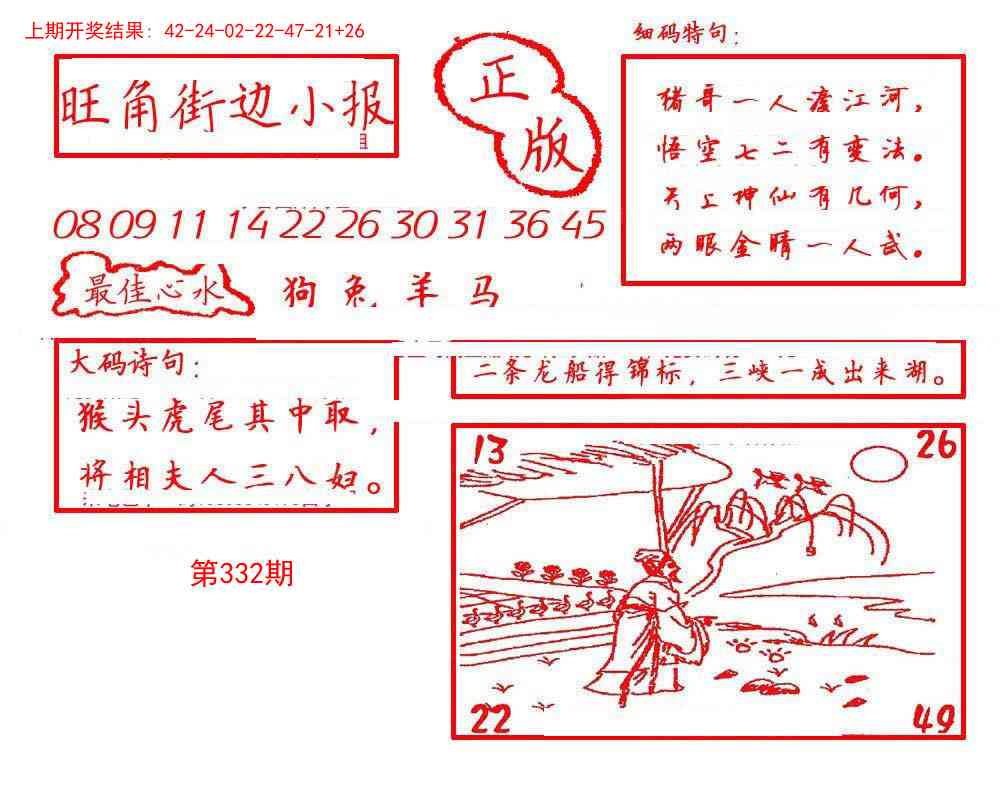 上期开奖结果: 42-24-02-22-47-21+26
细码特句:
旺角街边小报
正版
猪哥一人渡江河,
悟空七二有变法。
天上神仙有几何,
两眼金睛一人武。
08 09 11 14 22 26 30 31 36 45
最佳心水
狗 兔 羊 马
大码诗句:
猴头虎尾其中取,
将相夫人三八妇。
二条龙船得锦标, 三峡一成出来湖。
13
26
第332期
22
49